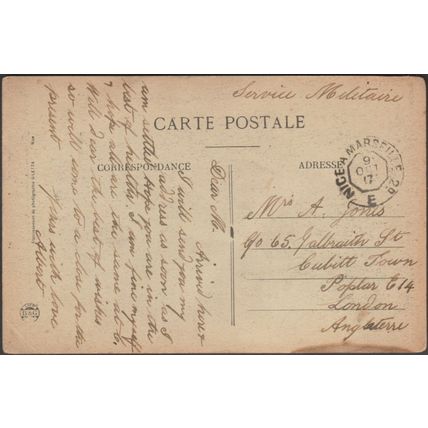 Service Militaire
CARTE POSTALE
CORRESPONDANCE
ADRESSE
NICE A MARSEILLE 2°
9
OCT
17
E
Mrs A. Jones
C/o 65, Galbraith St
Cubitt Town
Poplar E14
London
Angleterre
Dear M. Arrived here &
I will send you my
address as soon as I
am settled. Hope you are in the
best of health. I am fine myself
& hope all are the same at
Well Dear the best of wishes
so will come to a close for the
present
Yours with love
Albert